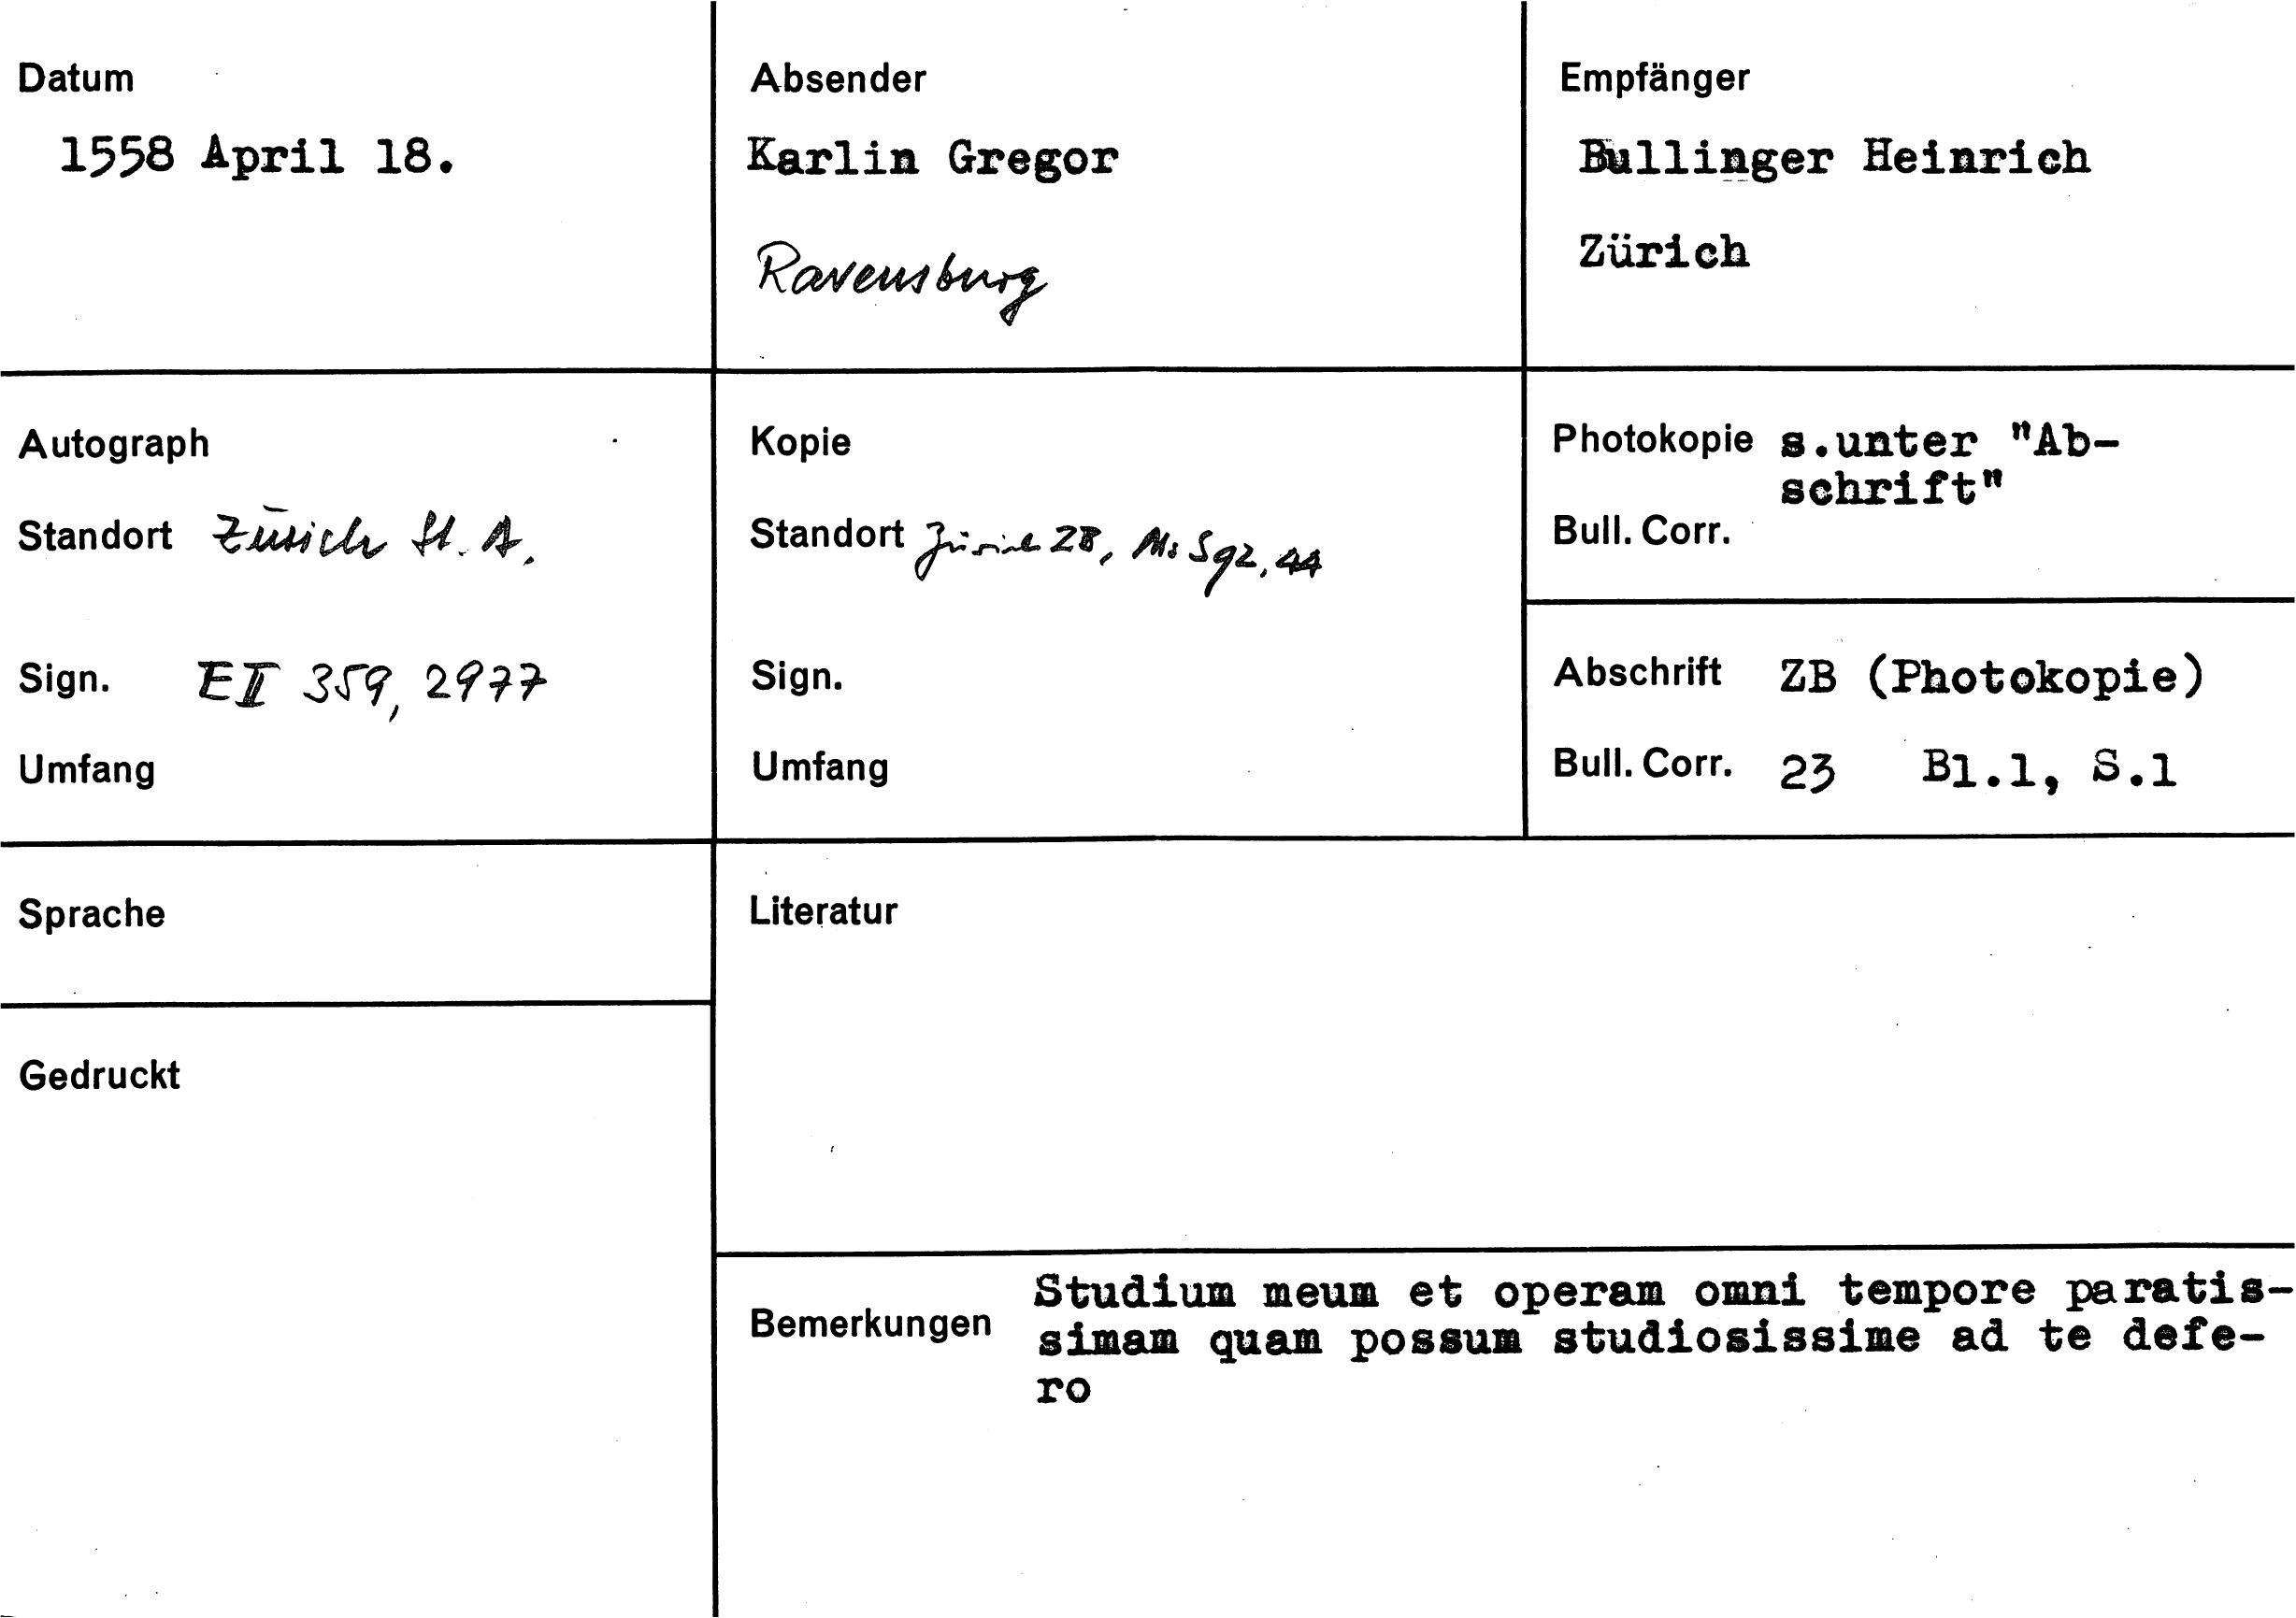 Datum
1558 April 18.
Absender
Karlin Gregor
Ravensburg
Empfänger
Bullinger Heinrich
Zürich
Autograph
Standort Zürich St. A.
Sign. E II 359, 2977
Umfang
Kopie
Standort Zürich ZB, Ms S 92, 44
Sign.
Umfang
Photokopie s.unter "Ab-
schrift"
Bull. Corr.
Abschrift ZB (Photokopie)
Bull. Corr. 23 Bl.1, S.1
Sprache
Literatur
Gedruckt
Bemerkungen
Studium meum et operam omni tempore paratis-
simam quam possum studiosissime ad te defe-
ro